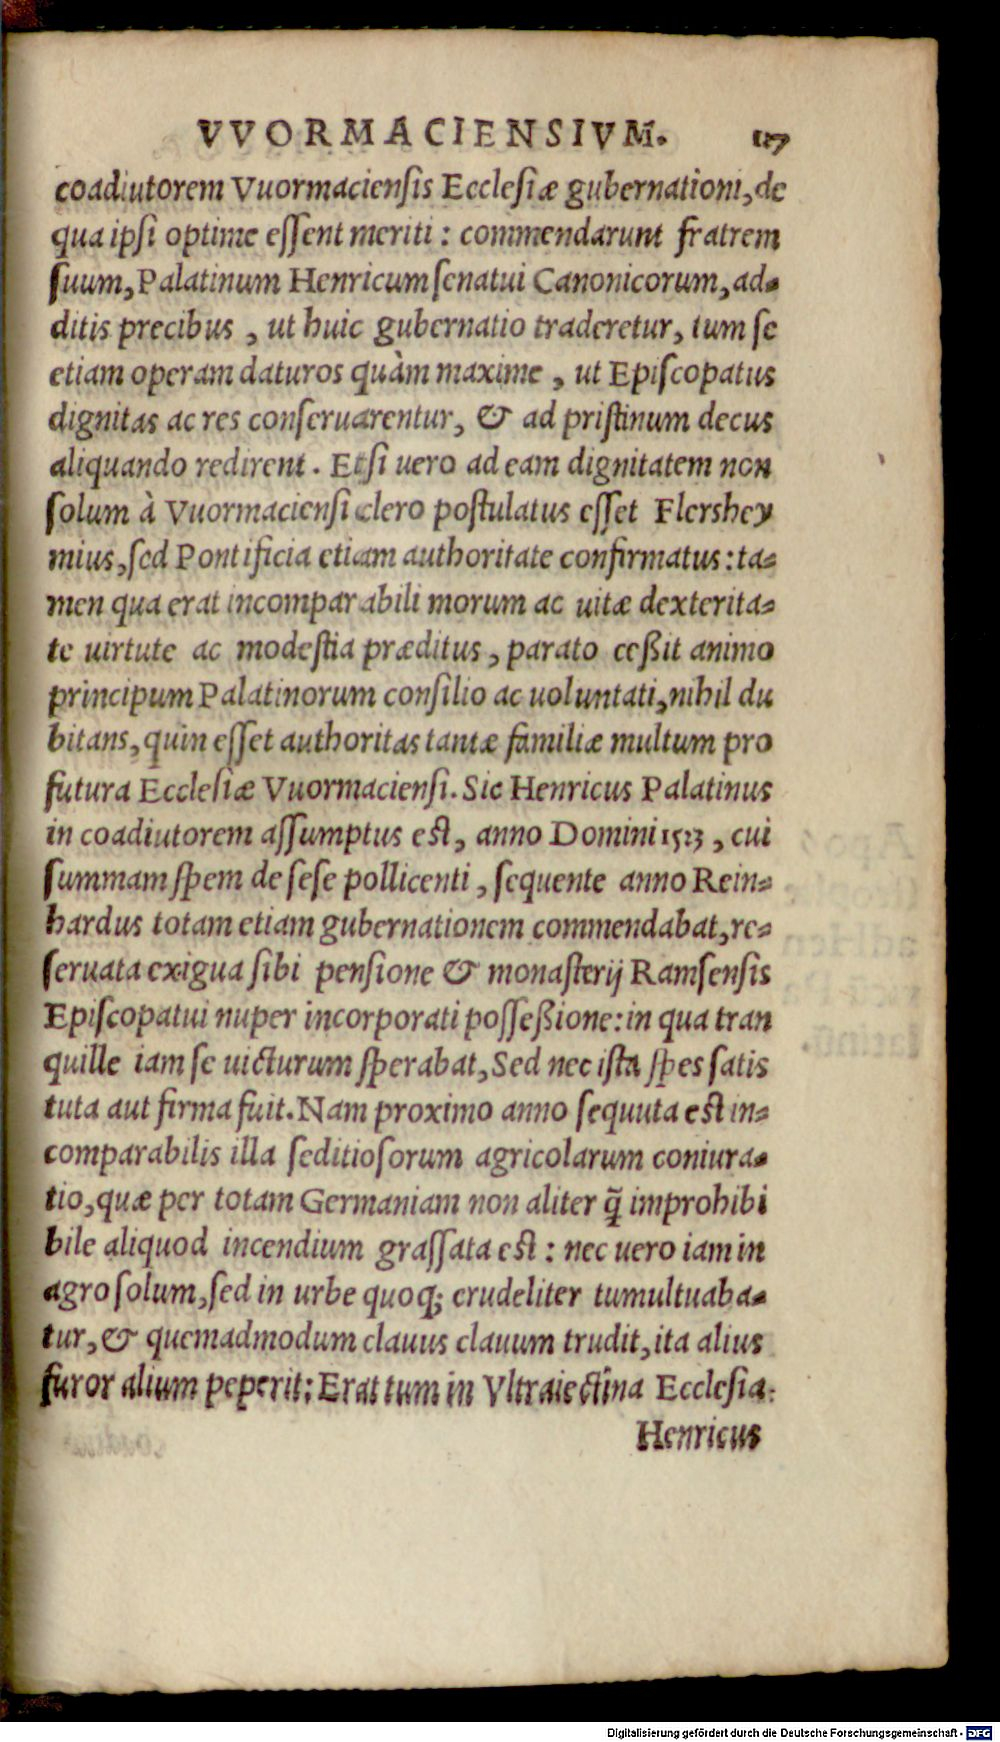 VVORMACIENSIVM. 127
coadiutorem Vuormaciensis Ecclesiæ gubernationi, de
qua ipsi optime essent meriti : commendarunt fratrem
suum, Palatinum Henricum senatui Canonicorum, ad-
ditis precibus , ut huic gubernatio traderetur, tum se
etiam operam daturos quàm maxime , ut Episcopatus
dignitas ac res conseruarentur, & ad pristinum decus
aliquando redirent . Etsi uero ad eam dignitatem non
solum à Vuormaciensi clero postulatus esset Flershey
mius, sed Pontificia etiam authoritate confirmatus : ta-
men qua erat incomparabili morum ac uitæ dexterita-
te uirtute ac modestia præditus , parato ceßit animo
principum Palatinorum consilio ac uoluntati, nihil du
bitans, quin esset authoritas tantæ familiæ multum pro
futura Ecclesiæ Vuormaciensi. Sic Henricus Palatinus
in coadiutorem assumptus est, anno Domini 1523 , cui
summam spem de sese pollicenti , sequente anno Rein-
hardus totam etiam gubernationem commendabat, re-
seruata exigua sibi pensione & monasterij Ramsensis
Episcopatui nuper incorporati posseßione: in qua tran
quille iam se uicturum sperabat, Sed nec ista spes satis
tuta aut firma fuit. Nam proximo anno sequuta est in-
comparabilis illa seditiosorum agricolarum coniura-
tio, quæ per totam Germaniam non aliter q̃ improhibi
bile aliquod incendium grassata est : nec uero iam in
agro solum, sed in urbe quoq; crudeliter tumultuaba-
tur, & quemadmodum clauus clauum trudit, ita alius
furor alium peperit: Erat tum in Vltraiectina Ecclesia
Henricus
Digitalisierung gefördert durch die Deutsche Forschungsgemeinschaft - DFG